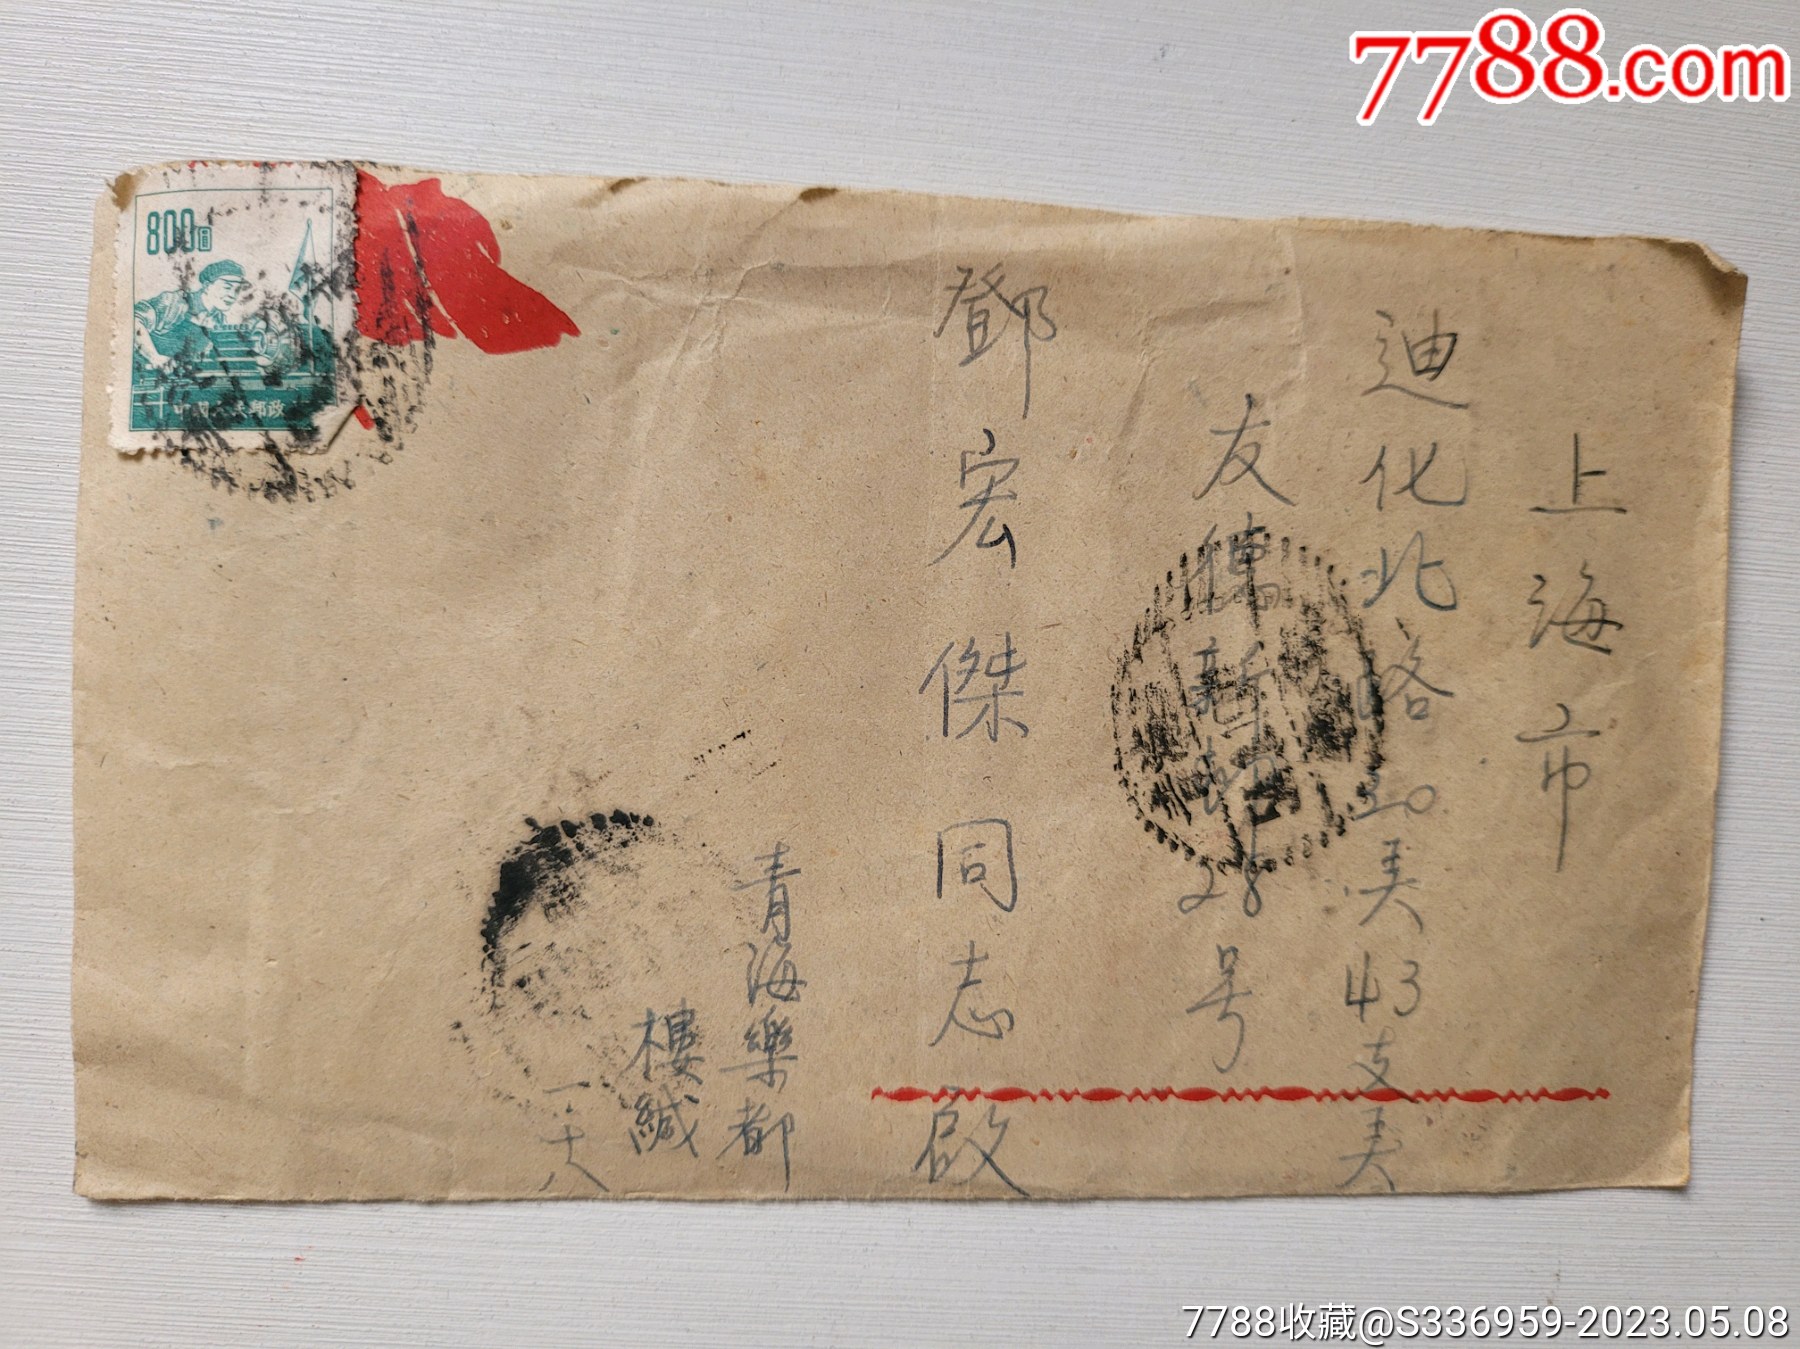 7788.com
800圓
中國人民郵政
上海市
迪化北路30弄43支弄
友德新邨28号
鄧宏傑同志啟
青海樂都
樓緘
一.十八
7788收藏@S336959-2023.05.08